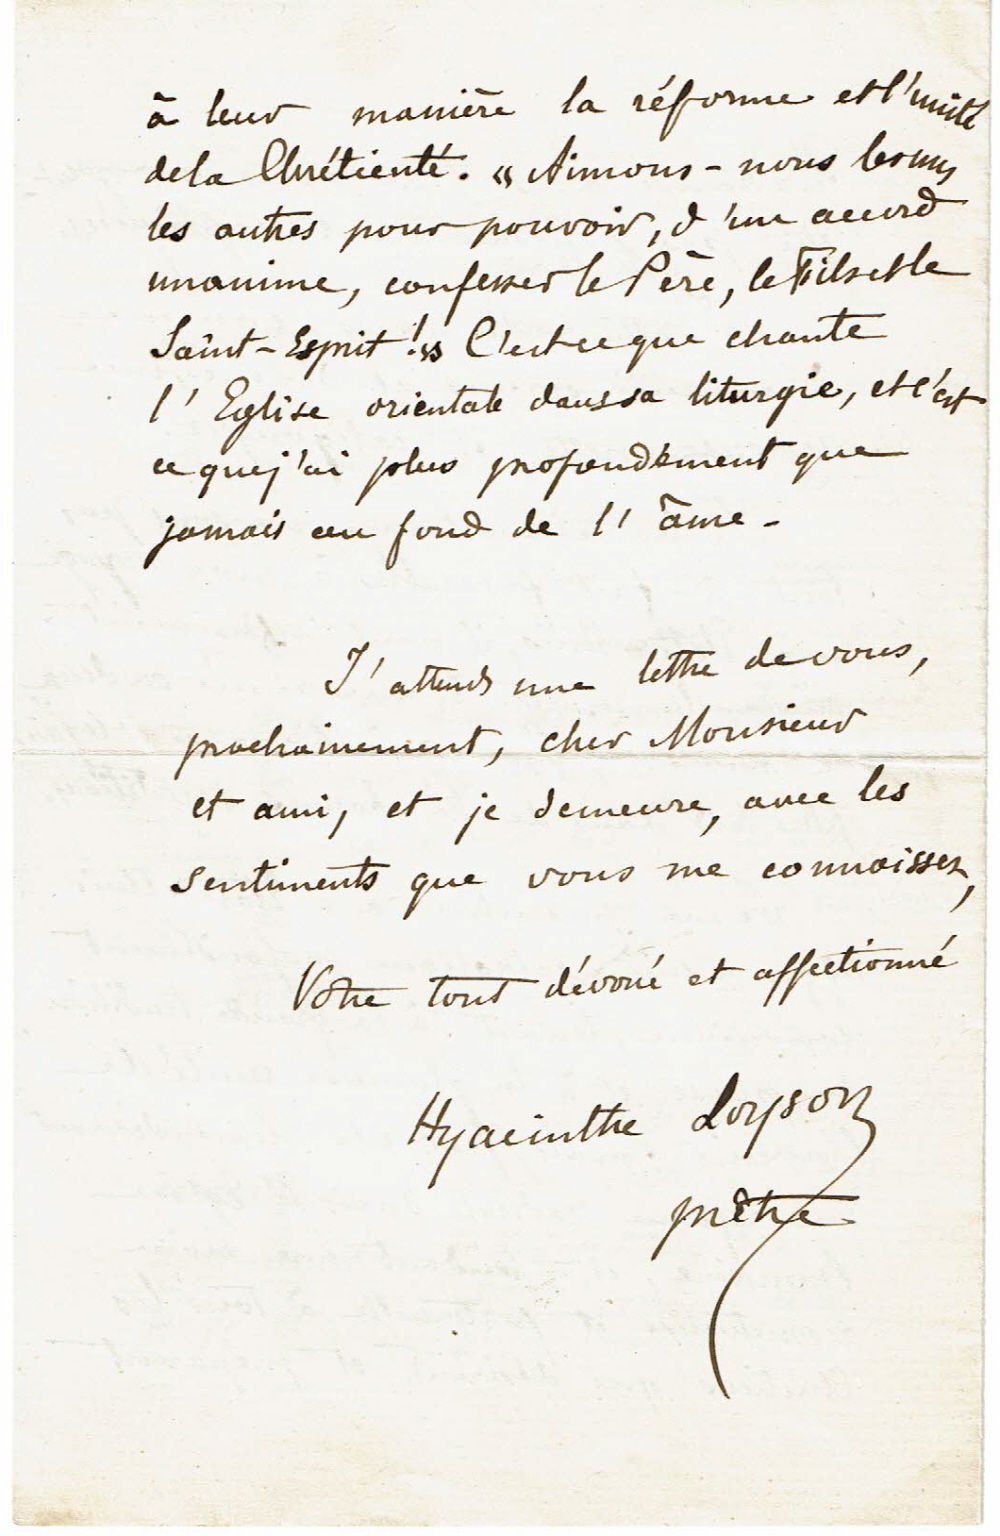 à leur manière la réforme et l'unité
de la Chrétienté. « Aimons-nous les uns
les autres pour pouvoir, d'un accord
unanime, confesser le Père, le Fils et le
Saint-Esprit ! » C'est ce que chante
l'Eglise orientale dans sa liturgie, et c'est
ce que j'ai plus profondément que
jamais au fond de l'âme -
J'attends une lettre de vous,
prochainement, cher Monsieur
et ami, et je demeure, avec les
sentiments que vous me connaissez,
Votre tout dévoué et affectionné
Hyacinthe Loyson
prêtre